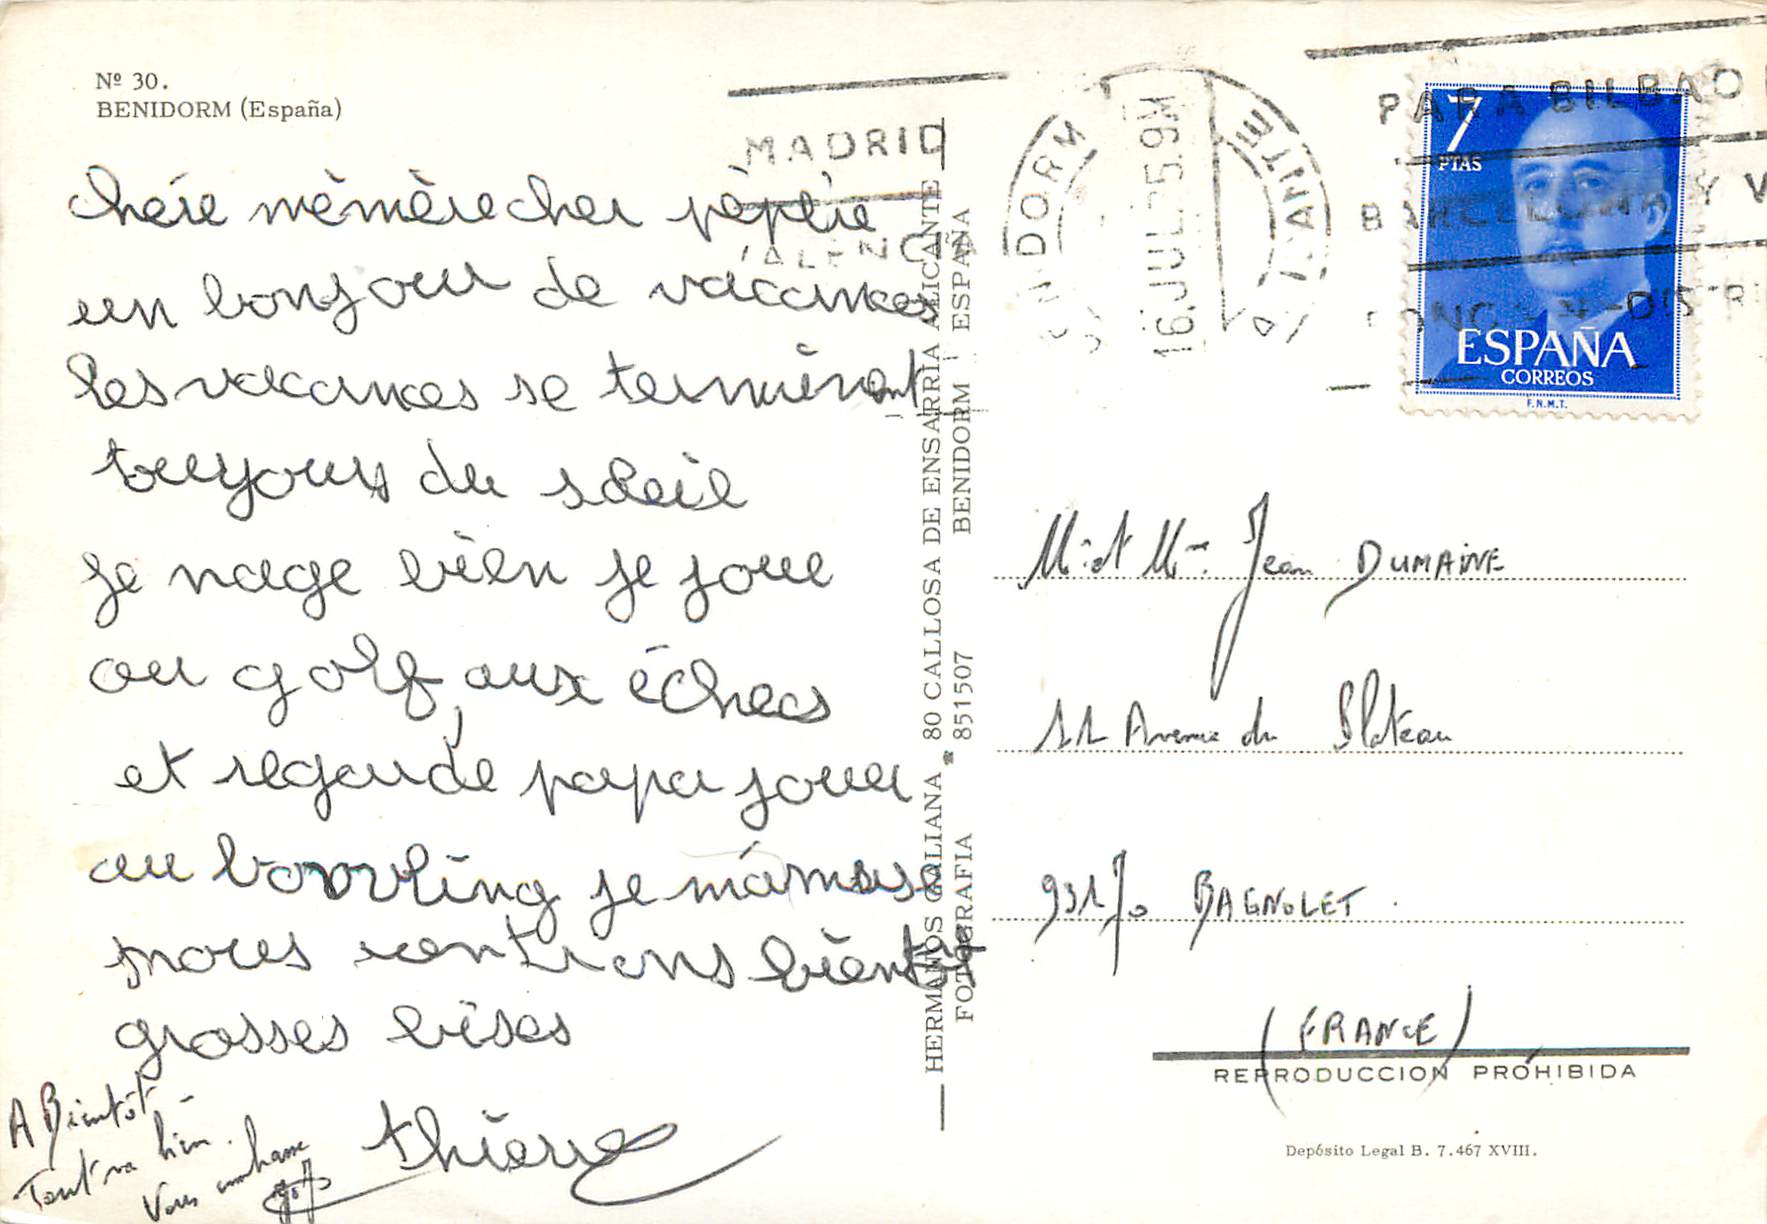 Nº 30.
BENIDORM (España)
chére mèmère cher pèpère
un bonjour de vacances
les vacances se terminent
toujours du soleil
je nage bien je joue
au golf, aux échecs
et regarde papa jouer
au bowling je m'amuse
nous rentrons bientôt
grosses bises
thierry
A Bientôt
Tout va bien.
Vous embrasse
HERMANOS GALIANA 80 CALLOSA DE ENSARRIA ALICANTE
FOTOGRAFIA ☎ 851507 BENIDORM ESPAÑA
MADRID
VALENCIA
BENIDORM
16.JUL.75.9M
ALICANTE
PARA BILBAO
BARCELONA Y V
PONGA Nº DISTRI
7
PTAS
ESPAÑA
CORREOS
F.N.M.T.
Mr et Mme Jean DUMAINE
11 Avenue du Plateau
93170 BAGNOLET
(FRANCE)
REPRODUCCION PROHIBIDA
Depósito Legal B. 7.467 XVIII.